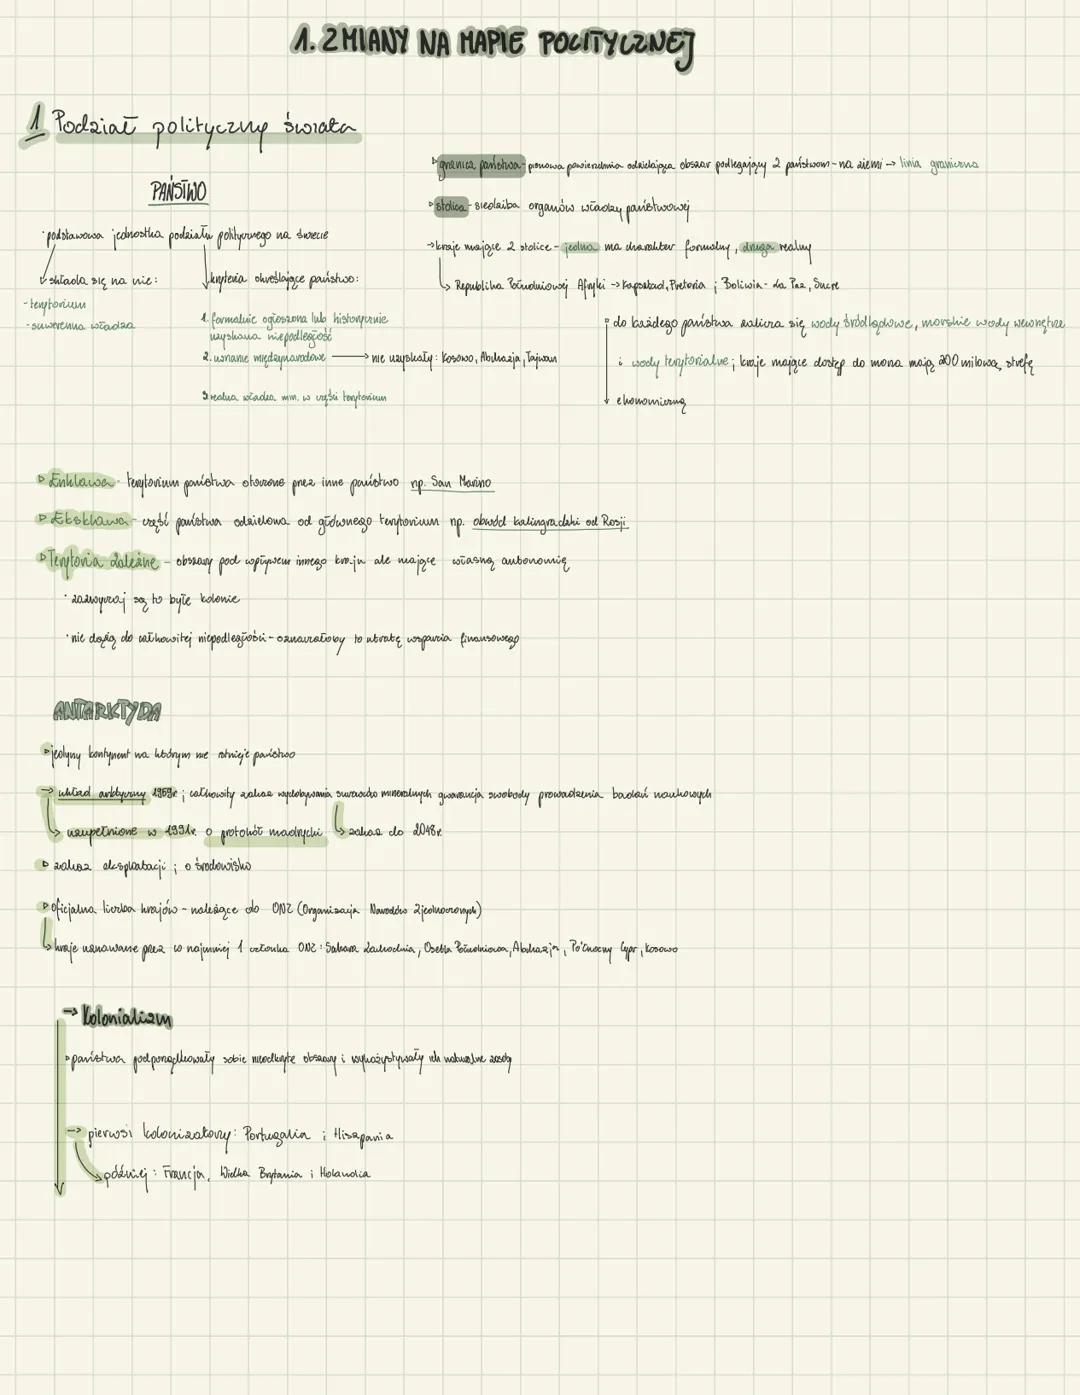 1. ZMIANY NA MAPIE POLITYCZNEJ
1 Podział polityczny świata
PAŃSTWO
· podstawowa jednostka podziału politycznego na świecie
składa się na nie:
- terytorium
- suwerenna władza
kryteria określające państwo:
1. formalnie ogłoszona lub historycznie
uzyskana niepodległość
2. uznanie międzynarodowe → nie uzyskały: Kosowo, Abchazja, Tajwan
3. realna władza min. w części terytorium
granica państwa - pionowa powierzchnia oddzielająca obszar podlegający 2 państwom - na ziemi → linia graniczna
stolica - siedziba organów władzy państwowej
→ kraje mające 2 stolice - jedna ma charakter formalny, druga realny
↳ Republika Południowej Afryki → Kapsztad, Pretoria ; Boliwia - La Paz, Sucre
do każdego państwa zalicza się wody śródlądowe, morskie wody wewnętrzne
i wody terytorialne ; kraje mające dostęp do morza mają 200 milową strefę
ekonomiczną
▷ Enklawa - terytorium państwa otoczone przez inne państwo np. San Marino
▷ Eksklawa - część państwa oddzielona od głównego terytorium np. obwód kaliningradzki od Rosji
▷ Terytoria zależne - obszary pod wpływem innego kraju ale mające własną autonomię
· zazwyczaj są to byłe kolonie
· nie dążą do całkowitej niepodległości - oznaczałoby to utratę wsparcia finansowego
ANTARKTYDA
▷ jedyny kontynent na którym nie istnieje państwo
→ układ arktyczny 1959r ; całkowity zakaz wydobywania surowców mineralnych gwarancja swobody prowadzenia badań naukowych
↳ uzupełnione w 1991r. o protokół madrycki ↳ zakaz do 2048r.
▷ zakaz eksploatacji ; o środowisko
▷ oficjalna liczba krajów - należące do ONZ (Organizacja Narodów Zjednoczonych)
↳ kraje uznawane przez co najmniej 1 członka ONZ : Sahara Zachodnia, Osetia Południowa, Abchazja, Północny Cypr, Kosowo
→ Kolonializm
▷ państwa podporządkowały sobie nieodkryte obszary i wykorzystywały ich naturalne zasoby
→ pierwsi kolonizatorzy: Portugalia i Hiszpania
↳ później: Francja, Wielka Brytania i Holandia